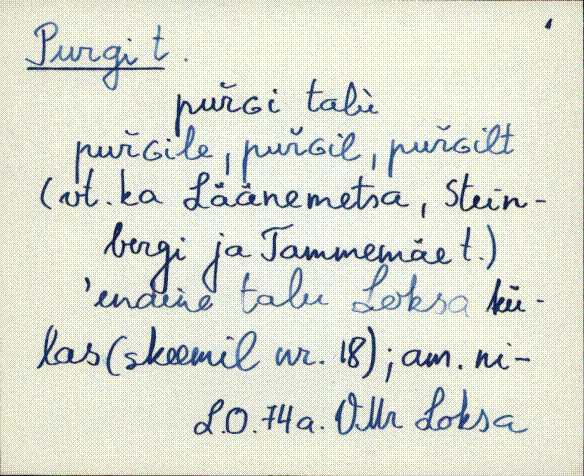 Purgi t.
purɢi talù
purɢile, purɢil, purɢilt
(vt. ka Läänemetsa, Stein-
bergi ja Tammemäe t.)
'endine talu Loksa kü-
las (skeemil nr. 18); am. ni-
L.O. 74 a. VMr Loksa